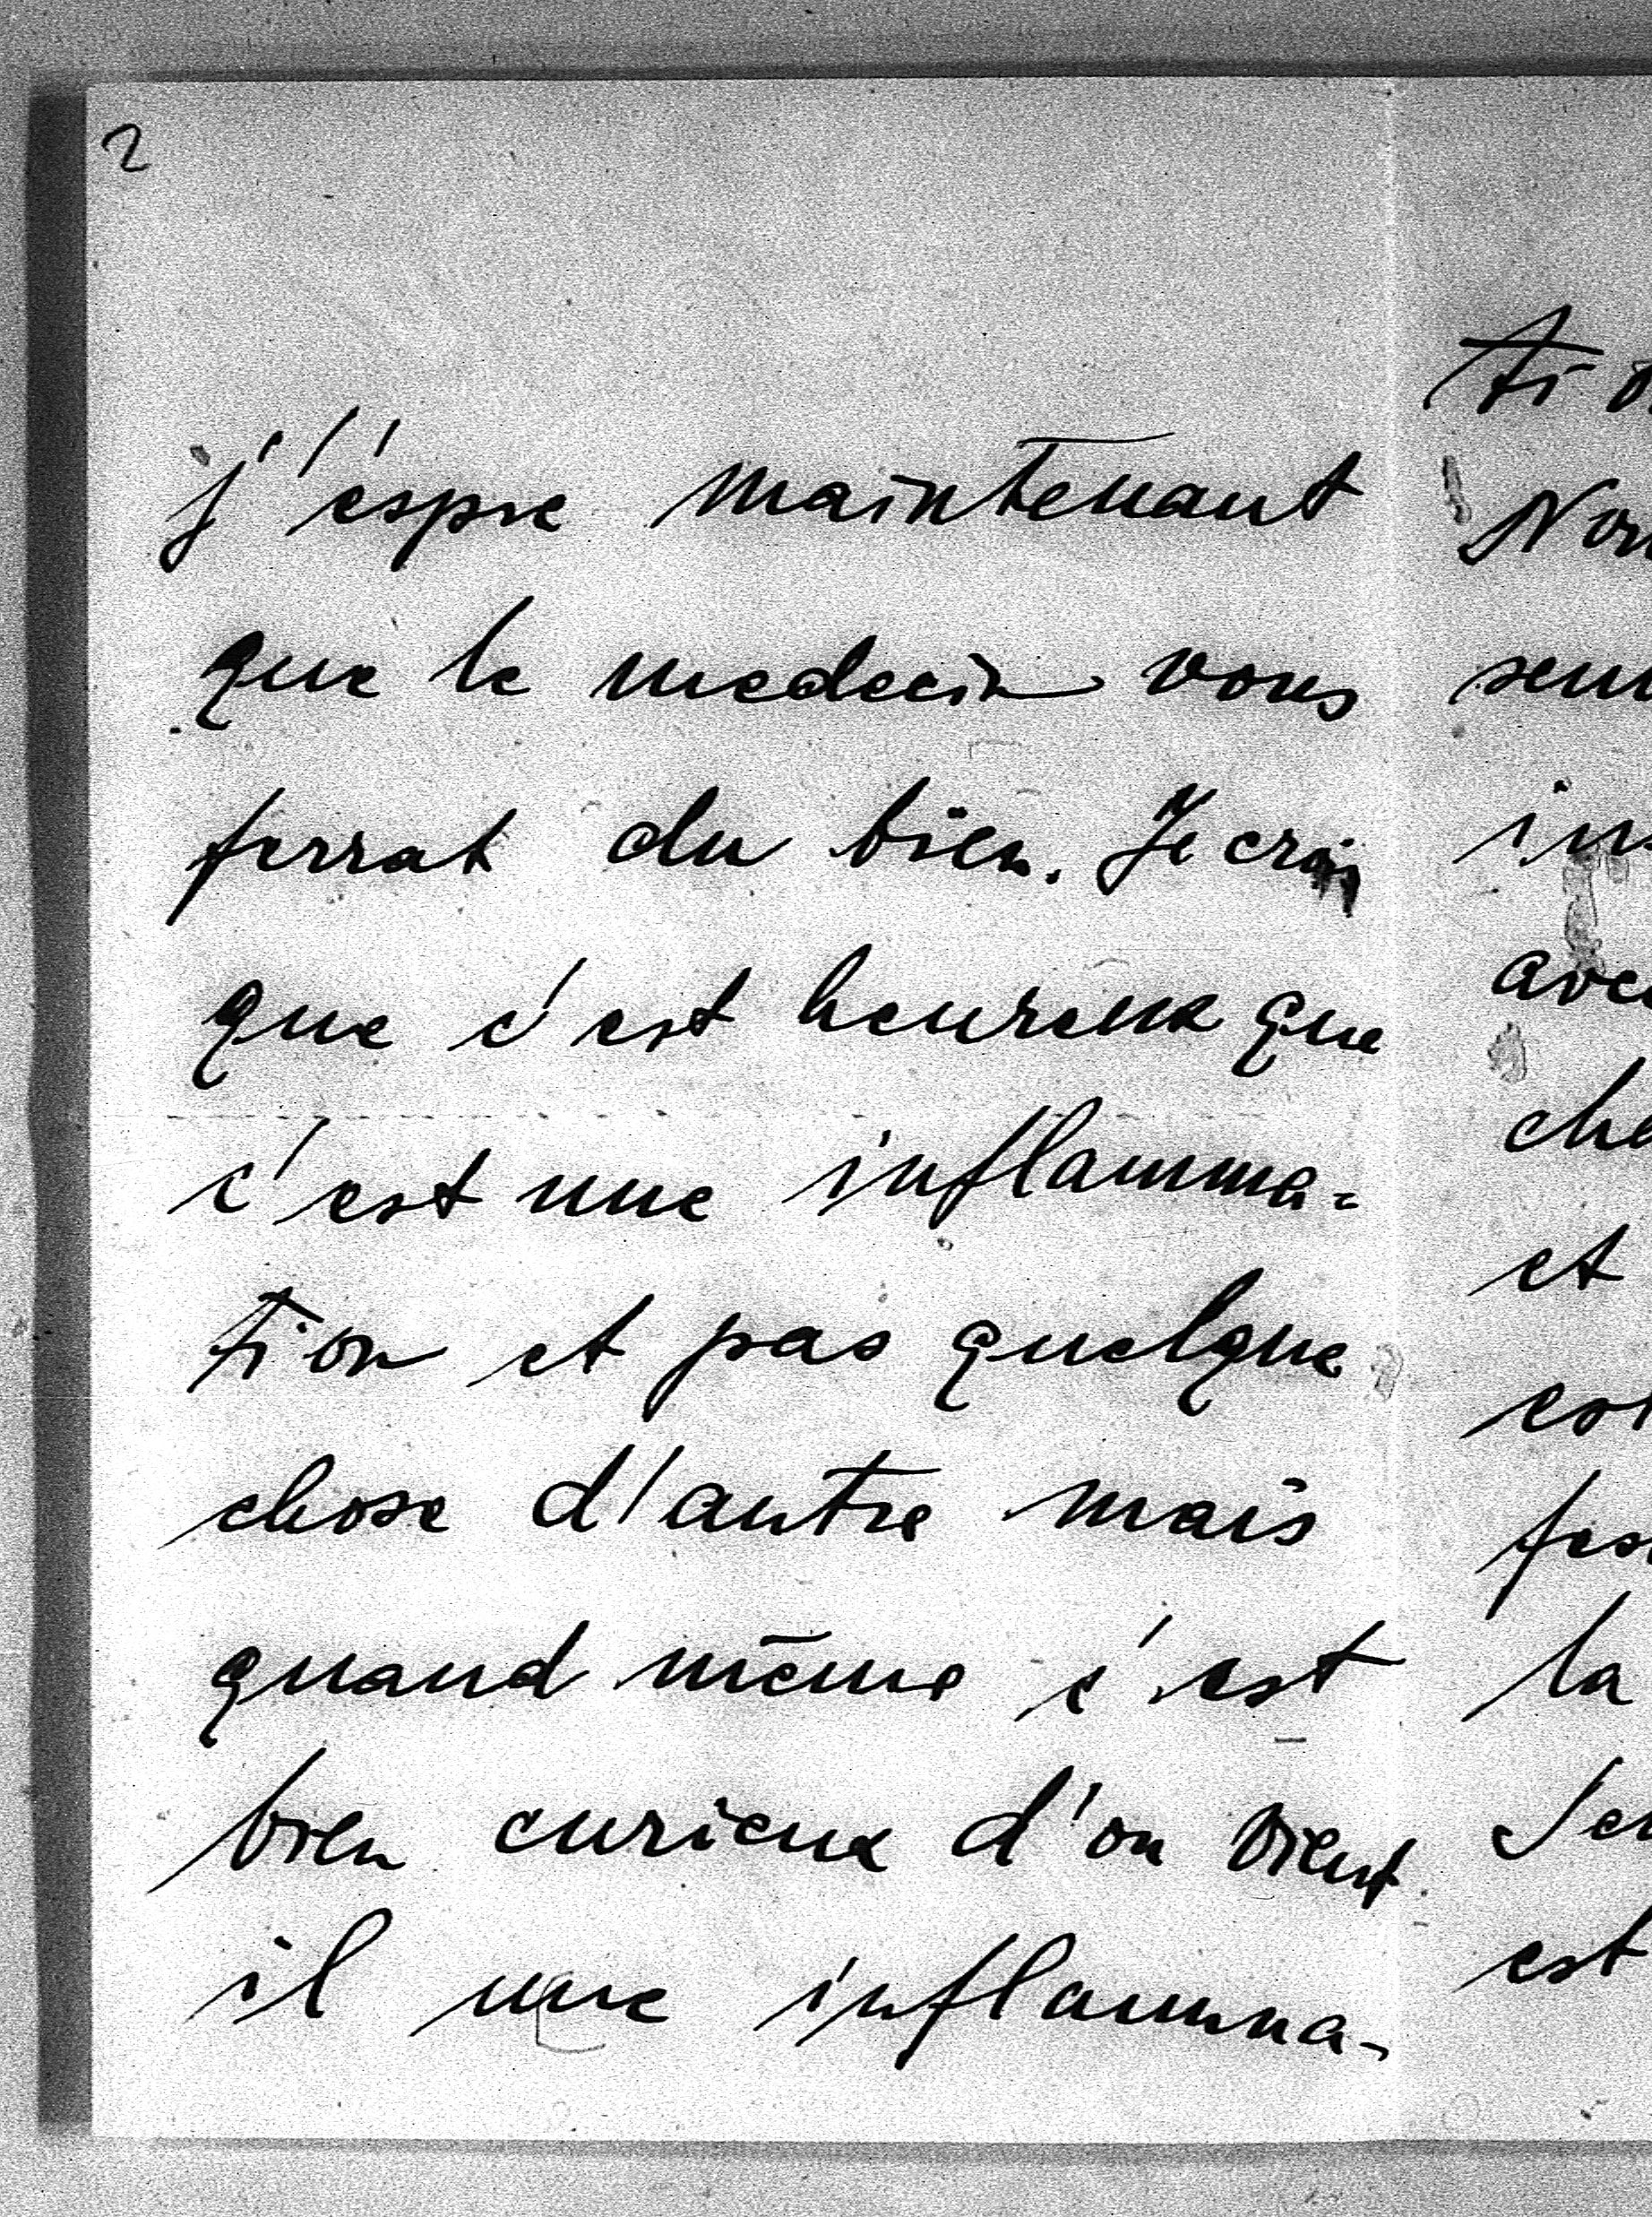 2
j'éspre maintenant
que le medecin vous
ferrat du bien. Je crois
que c'est heureux que
c'est une inflamma=
tion et pas quelque
chose d'autre mais
quand même c'est
bien curieux d'ou vient
il une inflamma-
la
et
est